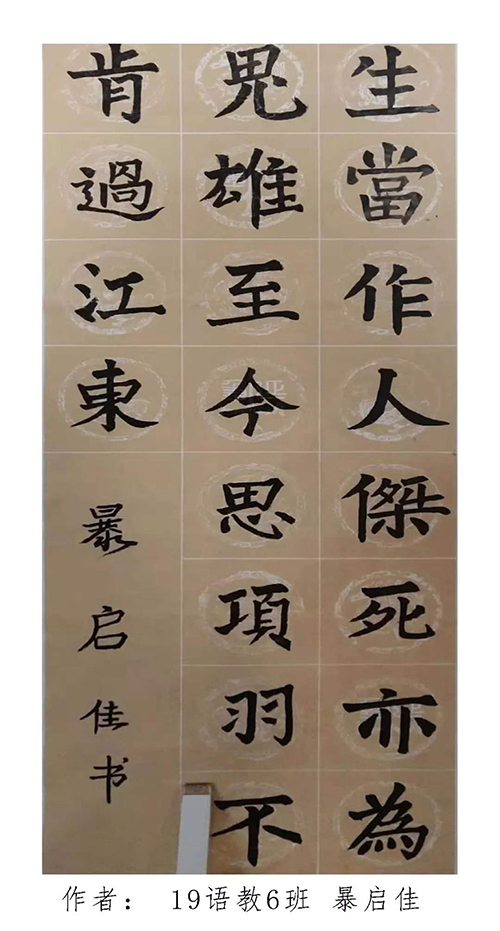 生當作人傑死亦為
鬼雄至今思項羽不
肯過江東
暴启佳书
作者： 19语教6班 暴启佳